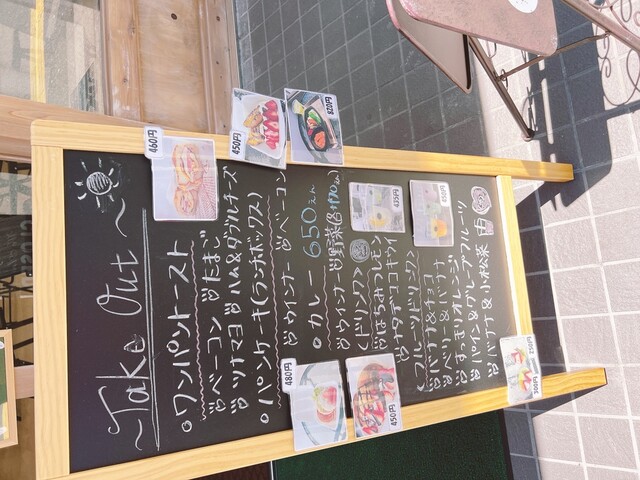 ~Take Out~
•ワンパントースト
ベーコン たまご
ツナマヨ ハム&ダブルチーズ
•パンケーキ(ランチボックス)
ウインナー ベーコン
•カレー 650えん
ウインナー 野菜
<ドリンク>
はちみつレモン
ナタデココキウイ
<フルーツドリンク>
バナナ&チョコ
ベリー&バナナ
すっきりオレンジ
パイン&グレープフルーツ
バナナ&小松菜
460円
450円
820円
435円
450円
480円
450円
300円
250円